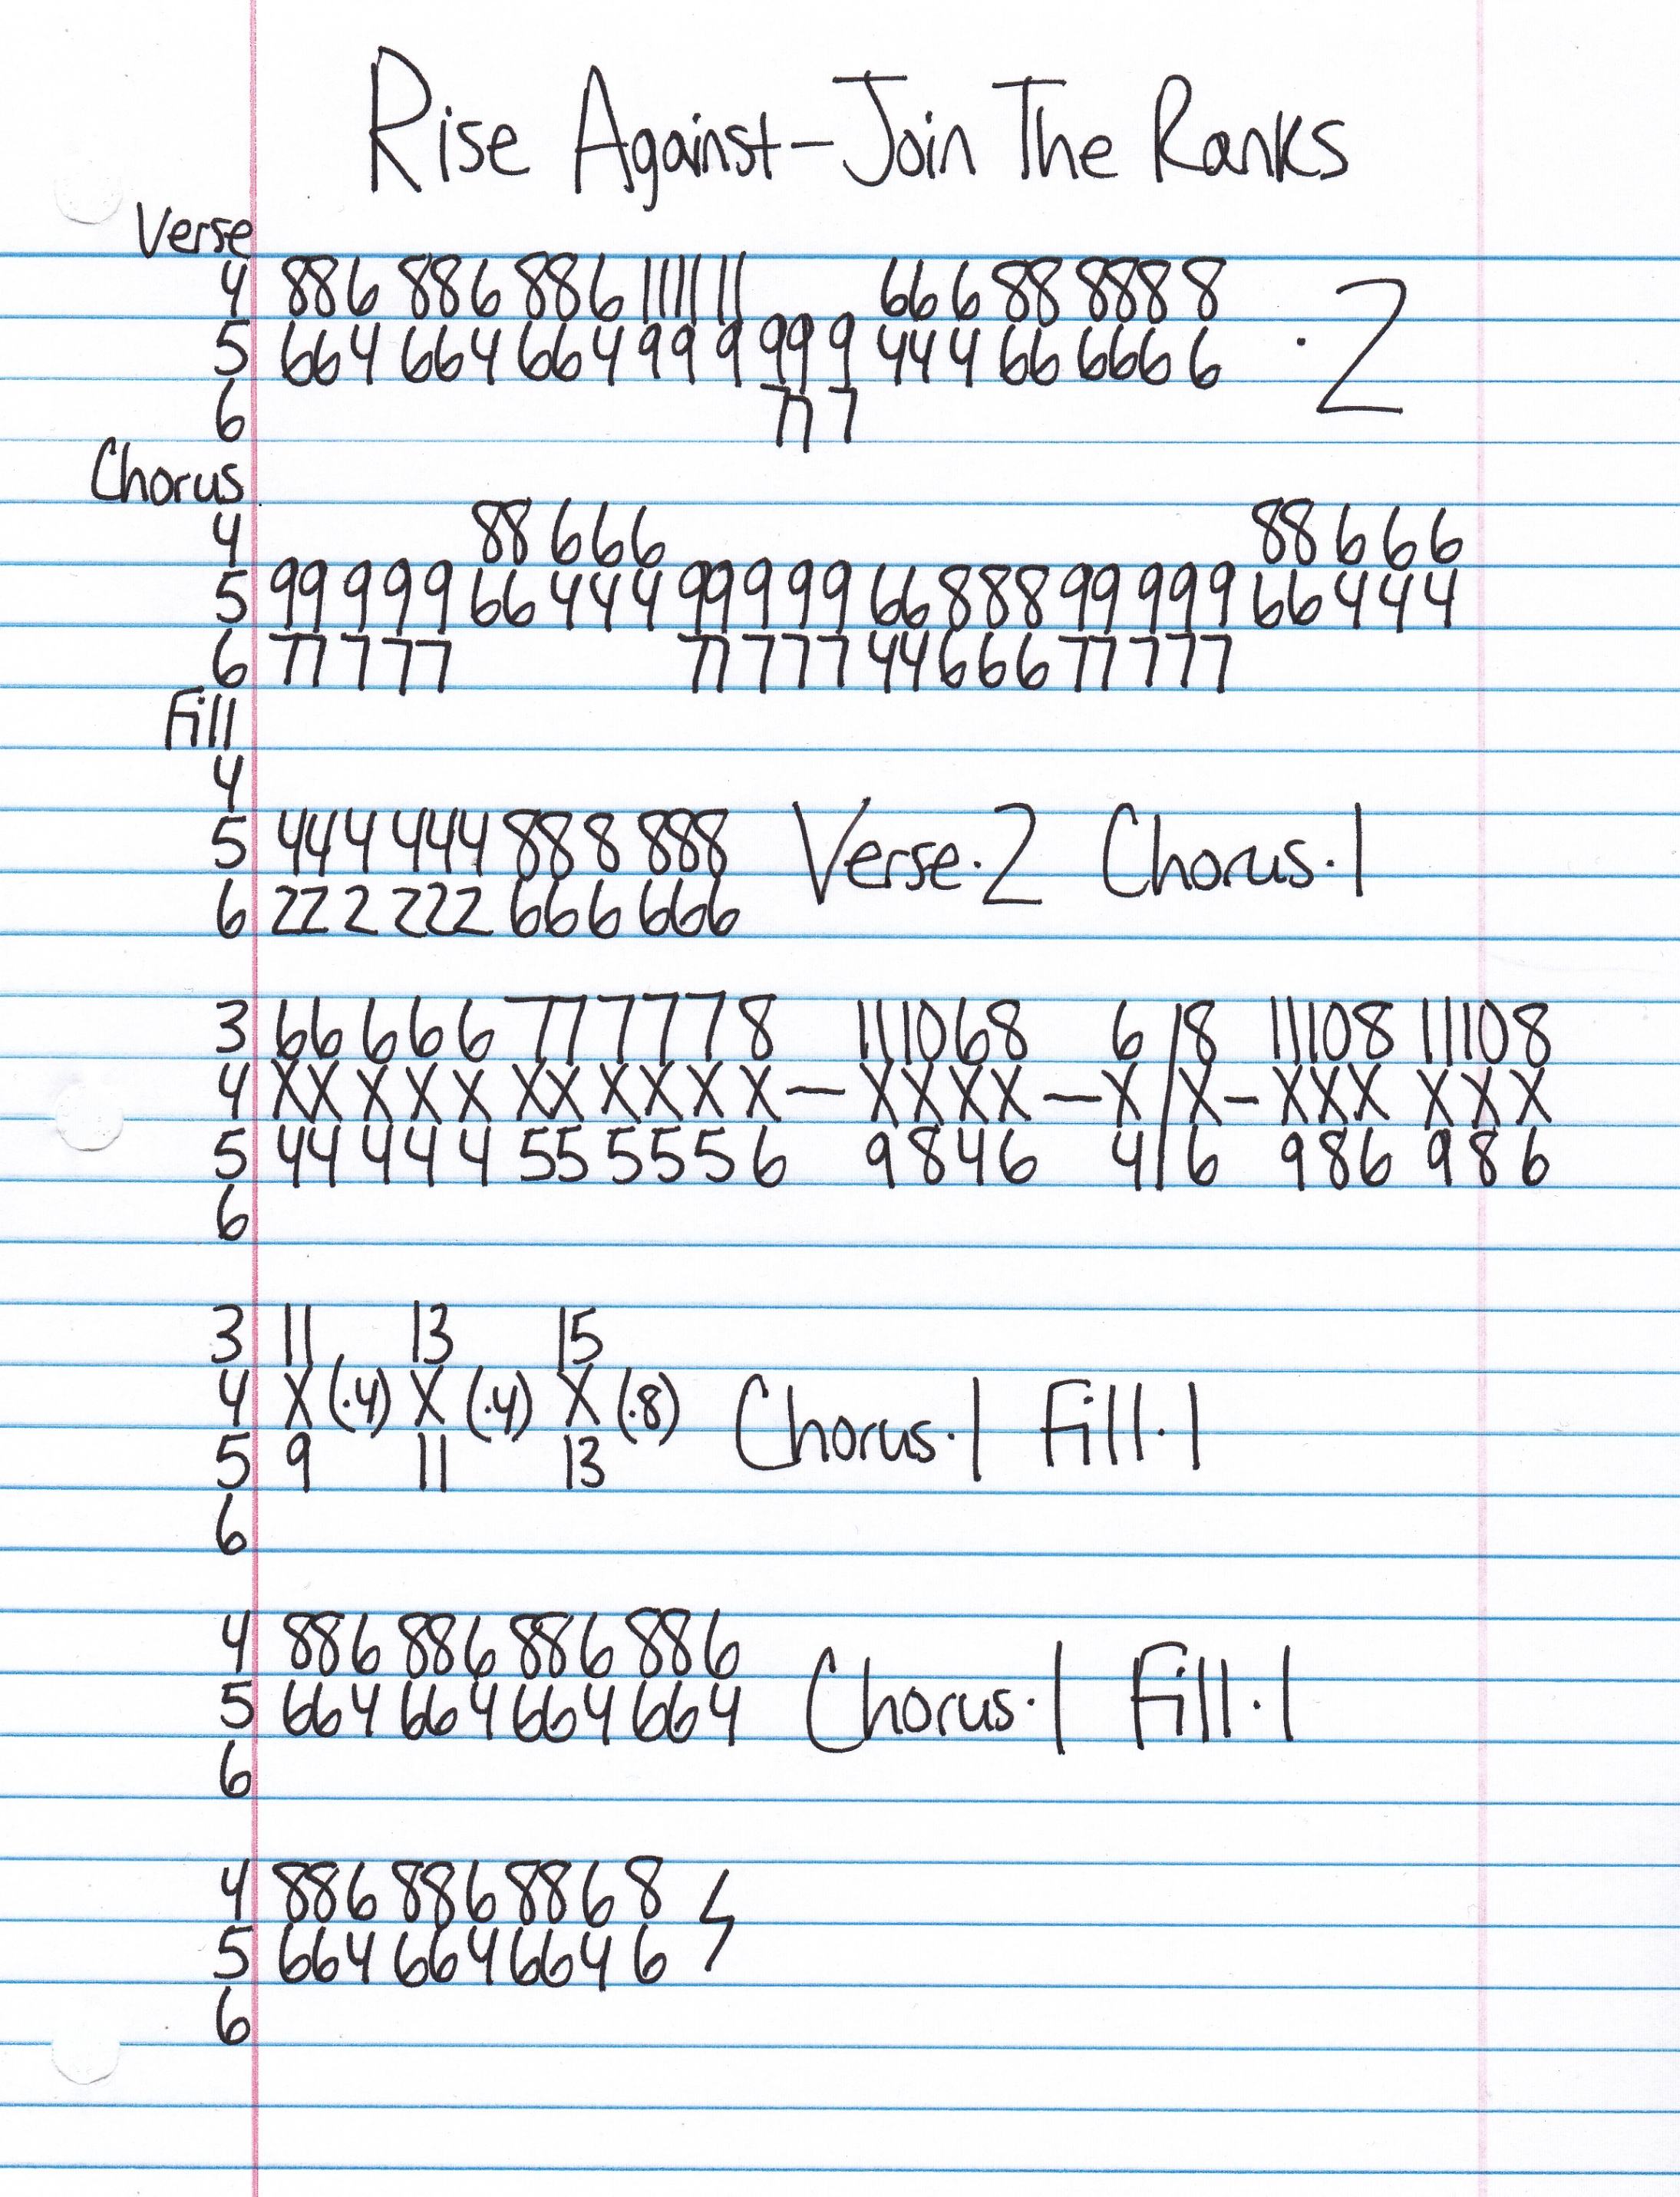 Rise Against-Join The Ranks
Verse
4 886 886 886 11 11 11 66 6 88 888 8
5 664 664 664 99 9 99 9 44 4 66 666 6 · 2
6 77 7
Chorus
4 88 666 88 6 6 6
5 99 9 9 9 66 4 4 4 99 9 9 9 66 888 99 9 9 9 66 4 4 4
6 77 7 7 7 77 7 7 7 44 666 77 7 7 7
Fill
4
5 444 444 888 888 Verse·2 Chorus·1
6 222 222 666 666
3 66 6 6 6 77 7 7 7 8 11 10 6 8 6 / 8 11 10 8 11 10 8
4 XX X X X XX X X X X — X X X X — X / X - X X X X X X
5 44 4 4 4 55 5 5 5 6 9 8 4 6 4 / 6 9 8 6 9 8 6
6
3 11 13 15
4 X (·4) X (·4) X (·8) Chorus·1 Fill·1
5 9 11 13
6
4 886 886 886 886
5 664 664 664 664 Chorus·1 Fill·1
6
4 886 886 886 8
5 664 664 664 6
6